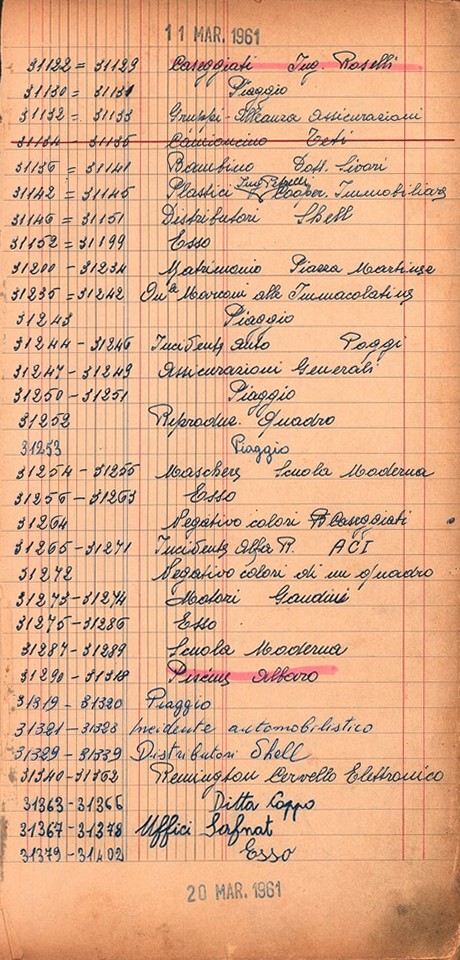 11 MAR. 1961
31122 = 31129 Caseggiati Ing. Roselli
31130 = 31131 Piaggio
31132 = 31133 Gruppi - Alleanza Assicurazioni
31134 - 31135 Camioncino Teti
31136 = 31141 Bambino Dott. Sivori
31142 = 31145 Plastici Ing. Cooper. Immobiliare
31146 = 31151 Distributori Shell
31152 = 31199 Esso
31200 - 31234 Matrimonio Piazza Martinez
31235 = 31242 On.a Marconi alle Immacolatine
31243 Piaggio
31244 - 31246 Incidente auto Poggi
31247 - 31249 Assicurazioni Generali
31250 - 31251 Piaggio
31252 Riproduz. Quadro
31253 Piaggio
31254 - 31255 Maschere Scuola Moderna
31256 - 31263 Esso
31264 Negativo colori Caseggiati
31265 - 31271 Incidente Alfa R. ACI
31272 Negativo colori di un quadro
31273 - 31274 Motori Gaudini
31275 - 31286 Esso
31287 - 31289 Scuola Moderna
31290 - 31318 Piscine Albaro
31319 - 31320 Piaggio
31321 - 31328 Incidente automobilistico
31329 - 31339 Distributori Shell
31340 - 31362 Remington Cervello Elettronico
31363 - 31366 Ditta Coppo
31367 - 31378 Uffici Lafnat
31379 - 31402 Esso
20 MAR. 1961